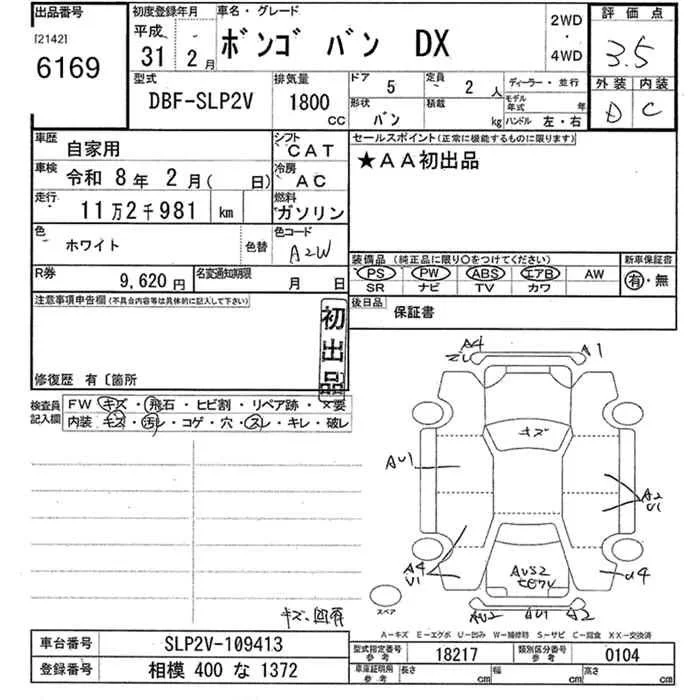 出品番号 初度登録年月 車名・グレード 評価点
[2142] 平成 2WD
6169 31 2月 ボンゴ バン DX ・ 3.5
4WD
外装 内装
型式 排気量 ドア 5 定員 2人 ディーラー・並行 D C
DBF-SLP2V 1800 形状 積載 モデル年式 年
CC バン kg ハンドル 左・右
車歴 自家用 シフト CAT セールスポイント(正常に機能するものに限ります)
車検 令和 8年 2月( 日) 冷房 AC ★AA初出品
走行 11万2千981 km 燃料 ガソリン
色 ホワイト 色替 色コード A2W
装備品 (純正品に限り〇をつけてください) 新車保証書
R券 9,620円 名変通知期限 月 日 PS PW ABS エアB AW 有・無
SR ナビ TV カワ
注意事項申告欄(不具合内容等は具体的に記入して下さい) 後日品 保証書
初出品
修復歴 有〔箇所
検査員記入欄 FW キズ・飛石・ヒビ割・リペア跡・×要
内装 キズ・汚レ・コゲ・穴・スレ・キレ・破レ
A4 A1
キズ
AU1 A2
U1
A4 AUS2 U4
U1
スペア AU2 AU1 A2
キズ、凹有
A-キズ E-エグボ U-凹み W-補修跡 S-サビ C-腐食 XX-交換済
車台番号 SLP2V-109413 型式指定番号 参考 18217 類別区分番号 参考 0104
登録番号 相模 400 な 1372 車庫証明用 参考 長さ cm 幅 cm 高さ cm